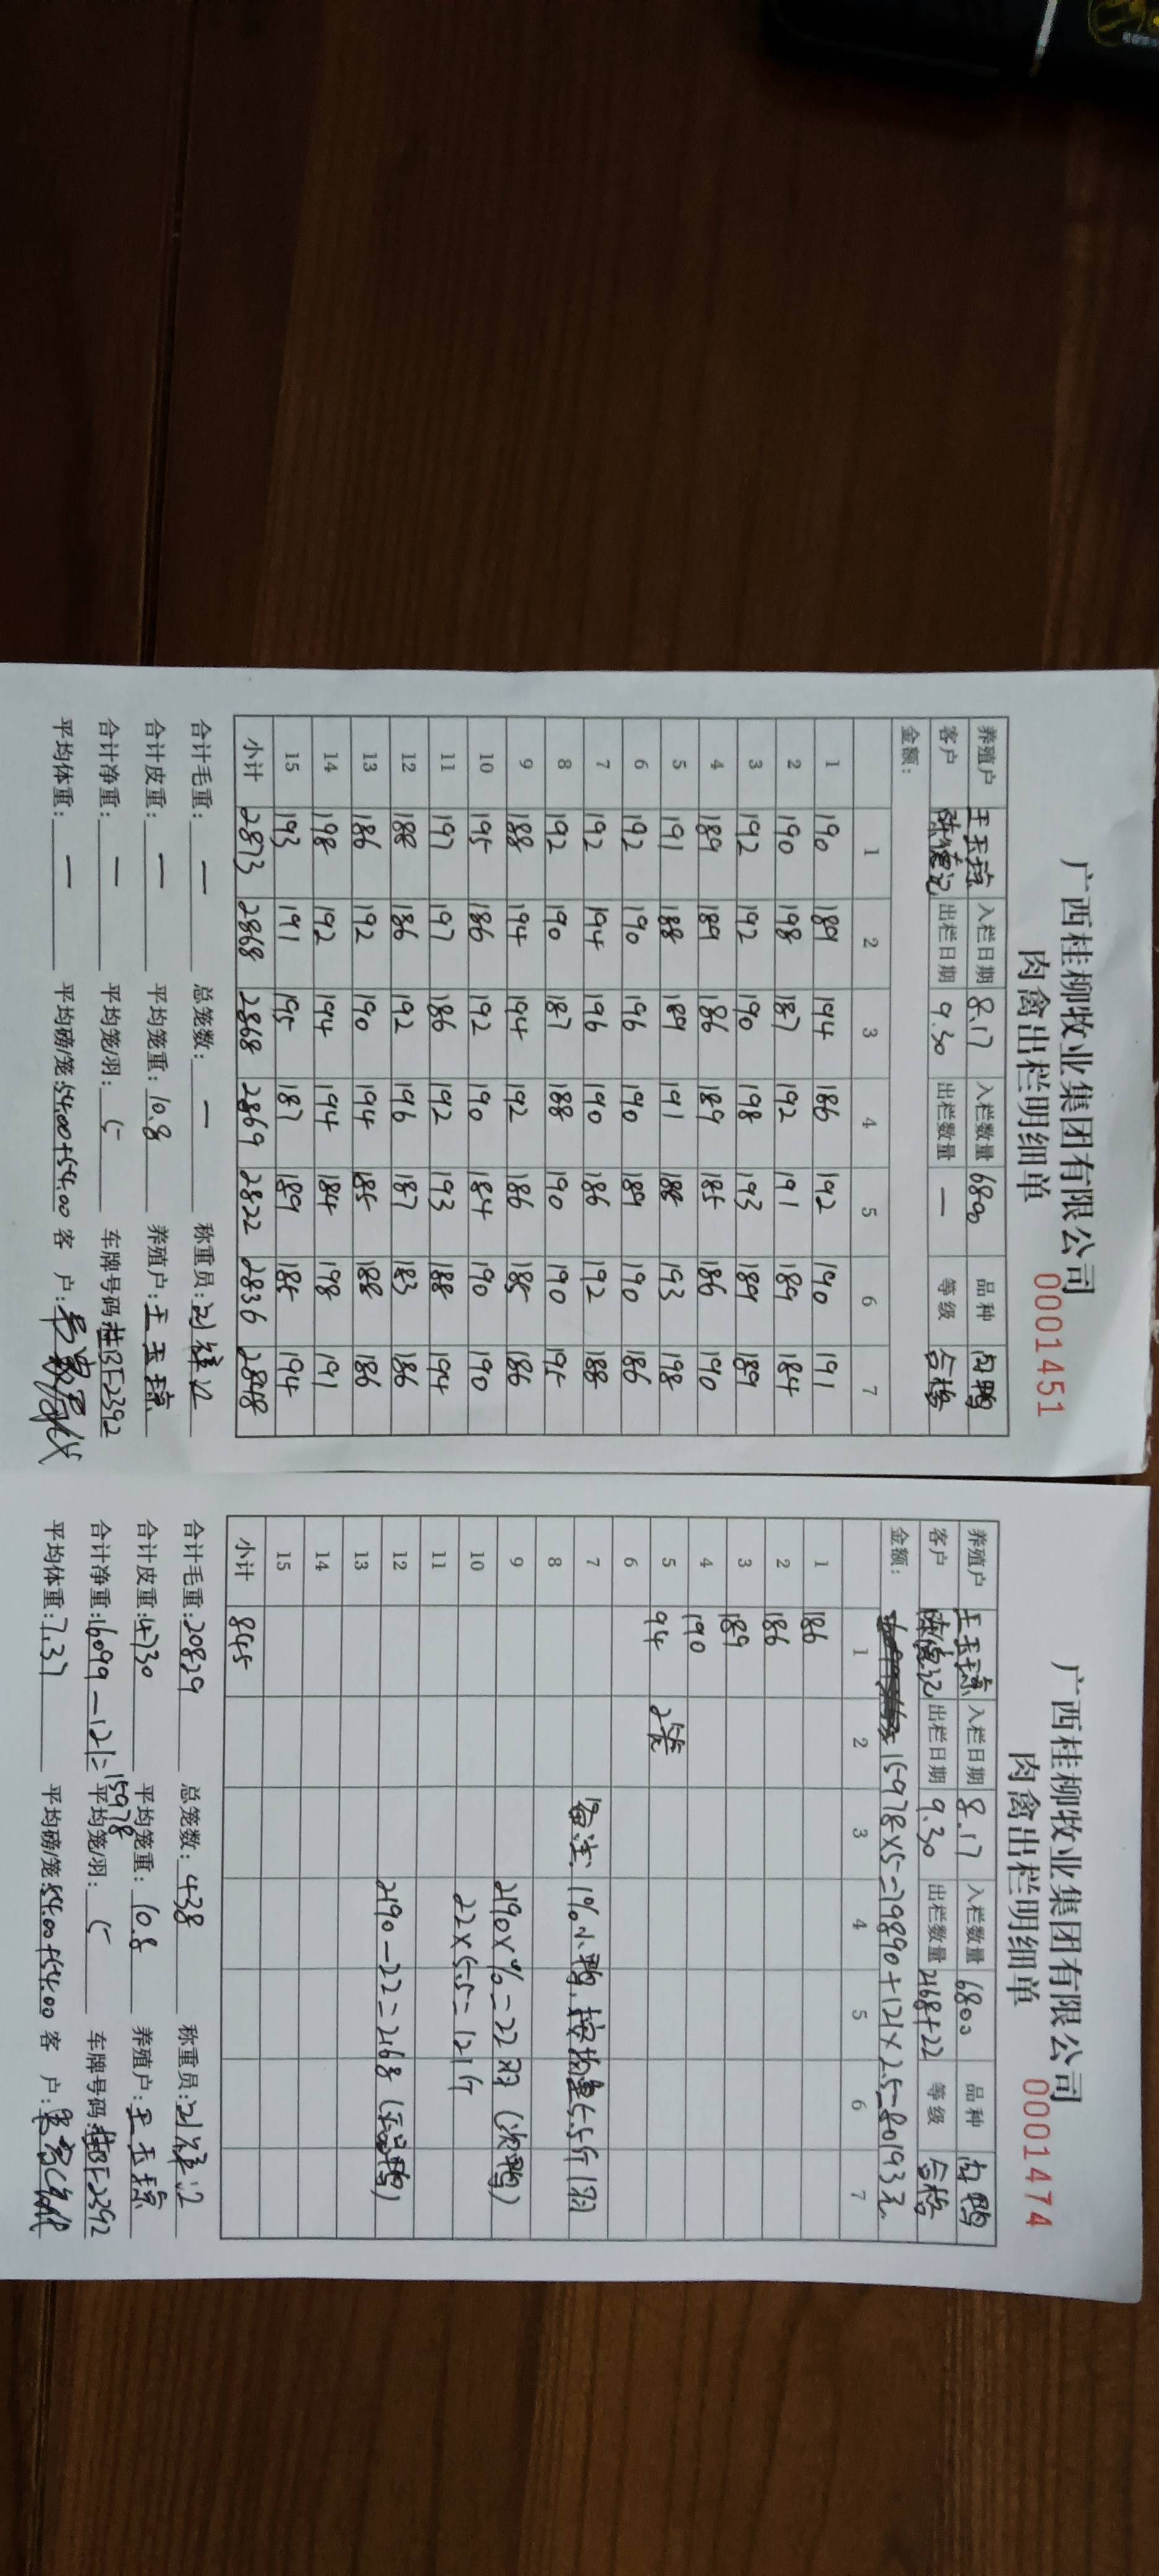 广西桂柳牧业集团有限公司
肉禽出栏明细单 0001451
养殖户 王玉琼 入栏日期 8.17 入栏数量 6800 品种 肉鸭
客户 出栏日期 9.30 出栏数量 — 等级 合格
金额：
1 2 3 4 5 6 7
1 190 189 194 186 192 190 191
2 190 198 187 192 191 189 184
3 192 192 190 198 193 189 189
4 189 189 186 189 185 186 190
5 191 188 189 191 188 193 198
6 192 190 196 190 189 190 186
7 192 194 196 190 186 192 188
8 192 190 187 188 190 190 195
9 188 194 194 192 186 185 186
10 195 186 192 190 184 190 190
11 197 197 186 192 193 188 194
12 188 186 192 196 187 183 186
13 186 192 190 194 185 188 186
14 198 192 194 194 184 198 191
15 193 191 195 187 189 185 194
小计 2873 2868 2868 2869 2822 2836 2848
合计毛重：— 总笼数：— 称重员：
合计皮重：— 平均笼重：10.8 养殖户：王玉琼
合计净重：— 平均笼/羽：5 车牌号码：
平均体重：— 平均磅/笼：54.00+54.00 客 户：
广西桂柳牧业集团有限公司
肉禽出栏明细单 0001474
养殖户 王玉琼 入栏日期 8.17 入栏数量 6800 品种 肉鸭
客户 出栏日期 9.30 出栏数量 2168+22 等级 合格
金额： 15978×5=79890+121×2.5=80193元
1 2 3 4 5 6 7
1 186
2 186
3 189
4 190
5 94 2笼
6
7 备注：1%小鸭，按均重5.5斤/羽
8
9 2190×%=22羽（次鸭）
10 22×5.5=121斤
11
12 2190-22=2168（正品鸭）
13
14
15
小计 845
合计毛重：20829 总笼数：438 称重员：
合计皮重：4730 平均笼重：10.8 养殖户：王玉琼
合计净重：16099-121=15978 平均笼/羽：5 车牌号码：
平均体重：7.37 平均磅/笼：54.00+54.00 客 户：